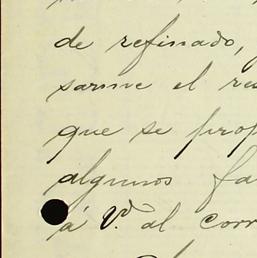 de refinado,
sarme el res
que se prop
algunos fa
á V. al corr